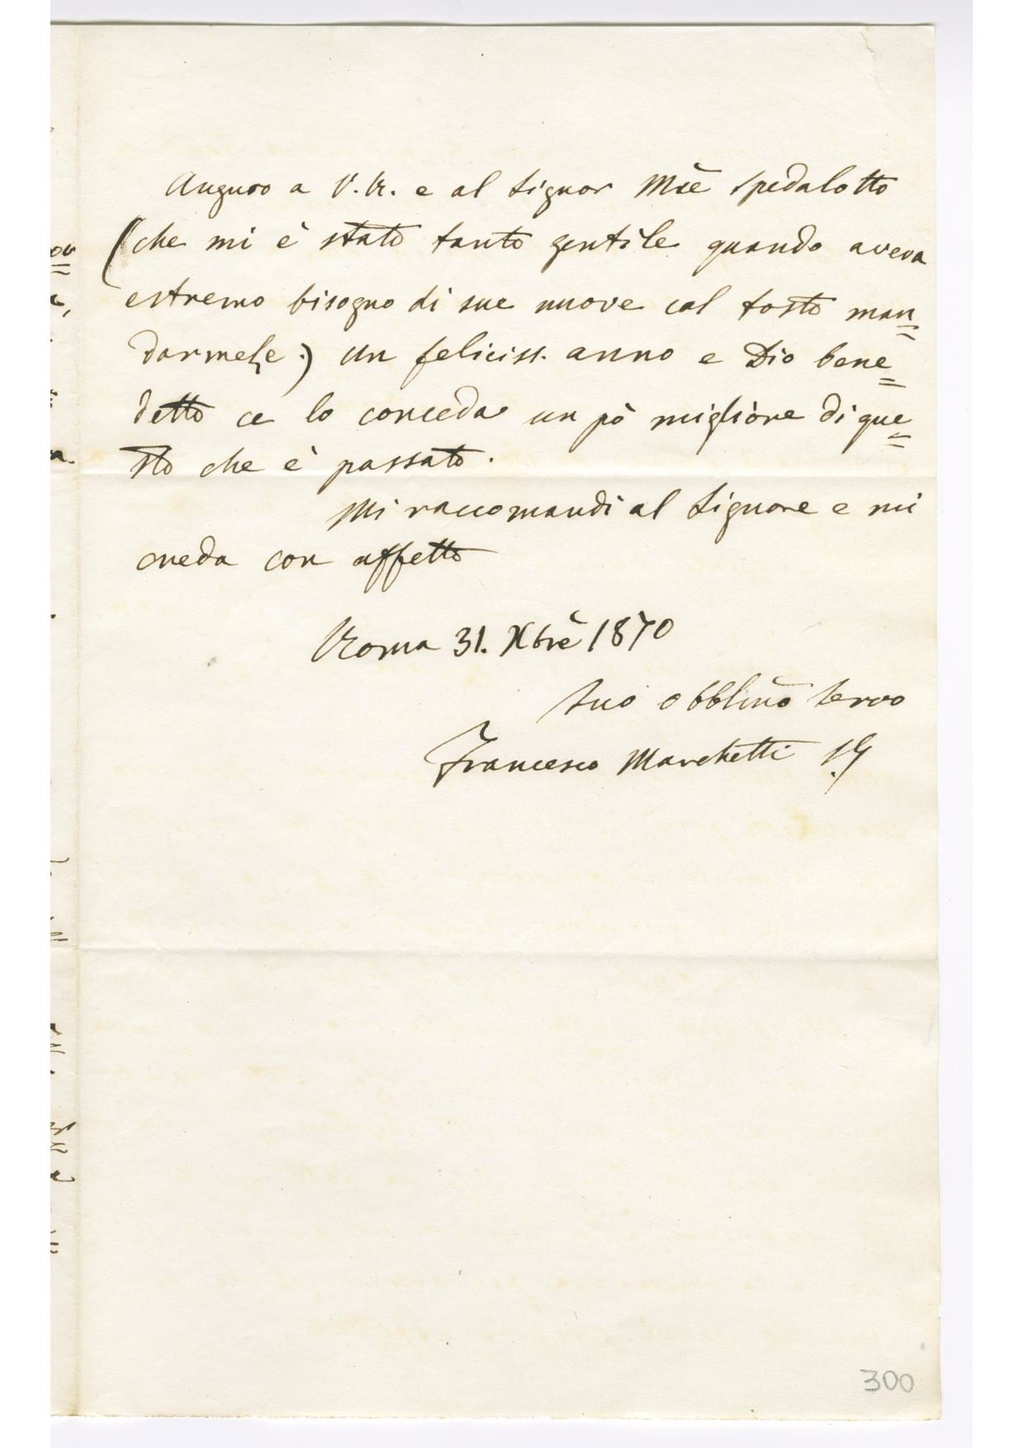 Auguro a V. R. e al Signor Mse Spedalotto
(che mi è stato tanto gentile quando aveva
estremo bisogno di sue nuove col tosto man=
darmele.) un feliciss. anno e Dio bene=
detto ce lo conceda un pò migliore di que=
sto che è passato.
Mi raccomandi al Signore e mi
creda con affetto
Roma 31. Xbrè 1870
Suo obblmo servo
Francesco Marchetti SJ
300